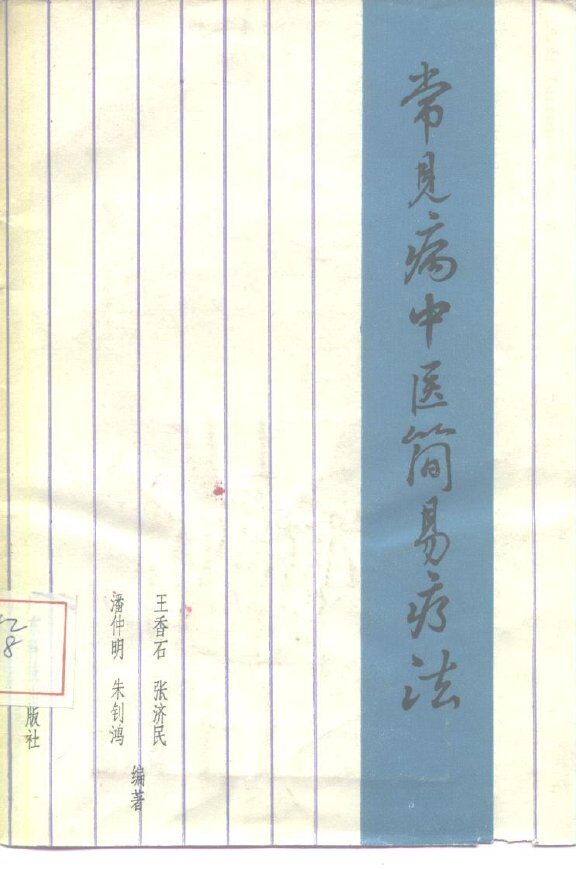 常见病中医简易疗法
王香石 张济民
潘仲明 朱钊鸿
编著
版社